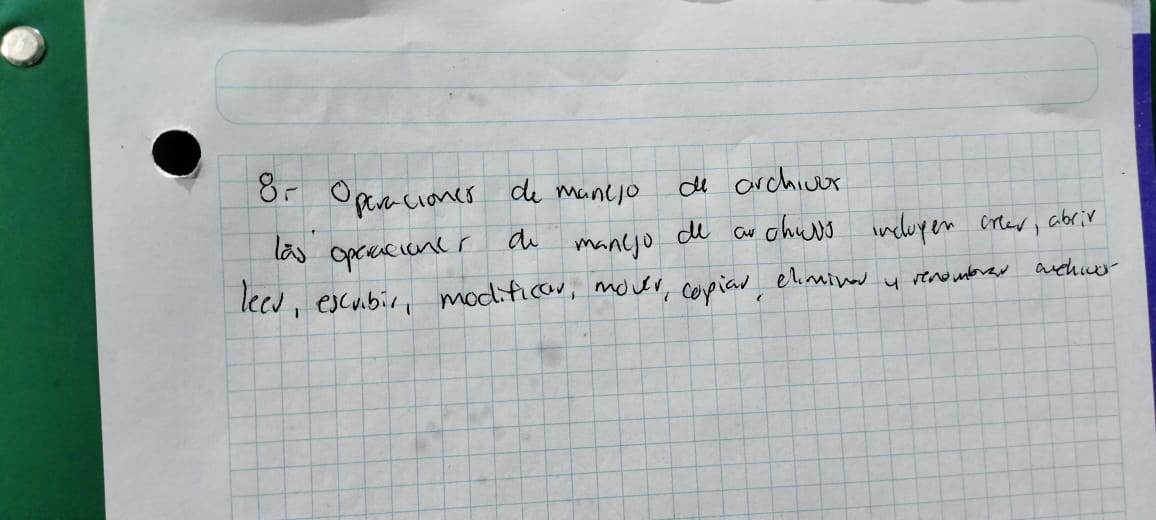 8.- Operaciones de manejo de archivos
las operaciones de manejo de archivos incluyen crear, abrir
leer, escribir, modificar, mover, copiar, eliminar y renombrar archivos